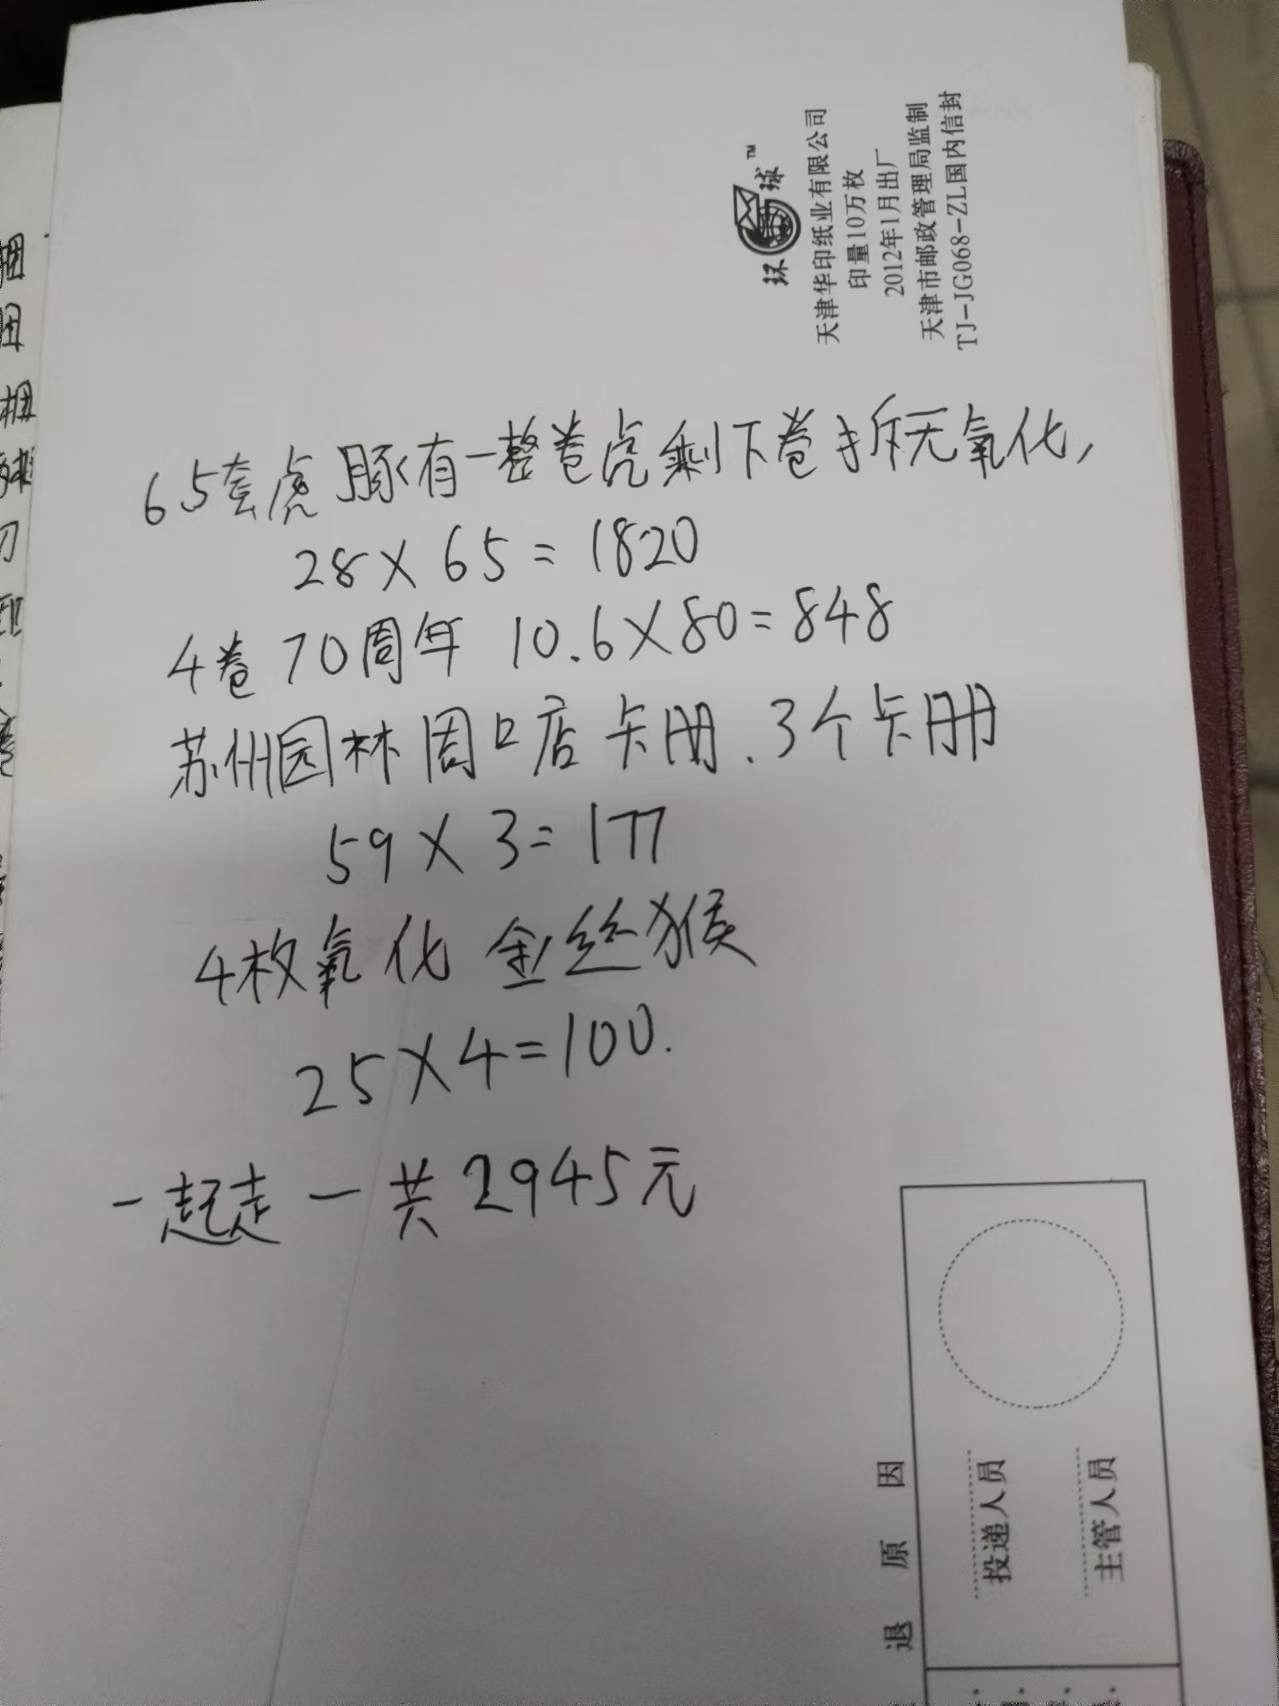 环球™
天津华印纸业有限公司
印量10万枚
2012年1月出厂
天津市邮政管理局监制
TJ-JG068-ZL国内信封
65套虎 豚有一整卷虎剩下卷拆无氧化,
28×65=1820
4卷 70周年 10.6×80=848
苏州园林周口店卡册.3个卡册
59×3=177
4枚氧化 金丝猴
25×4=100.
一起走一共2945元
退原因
投递人员
主管人员